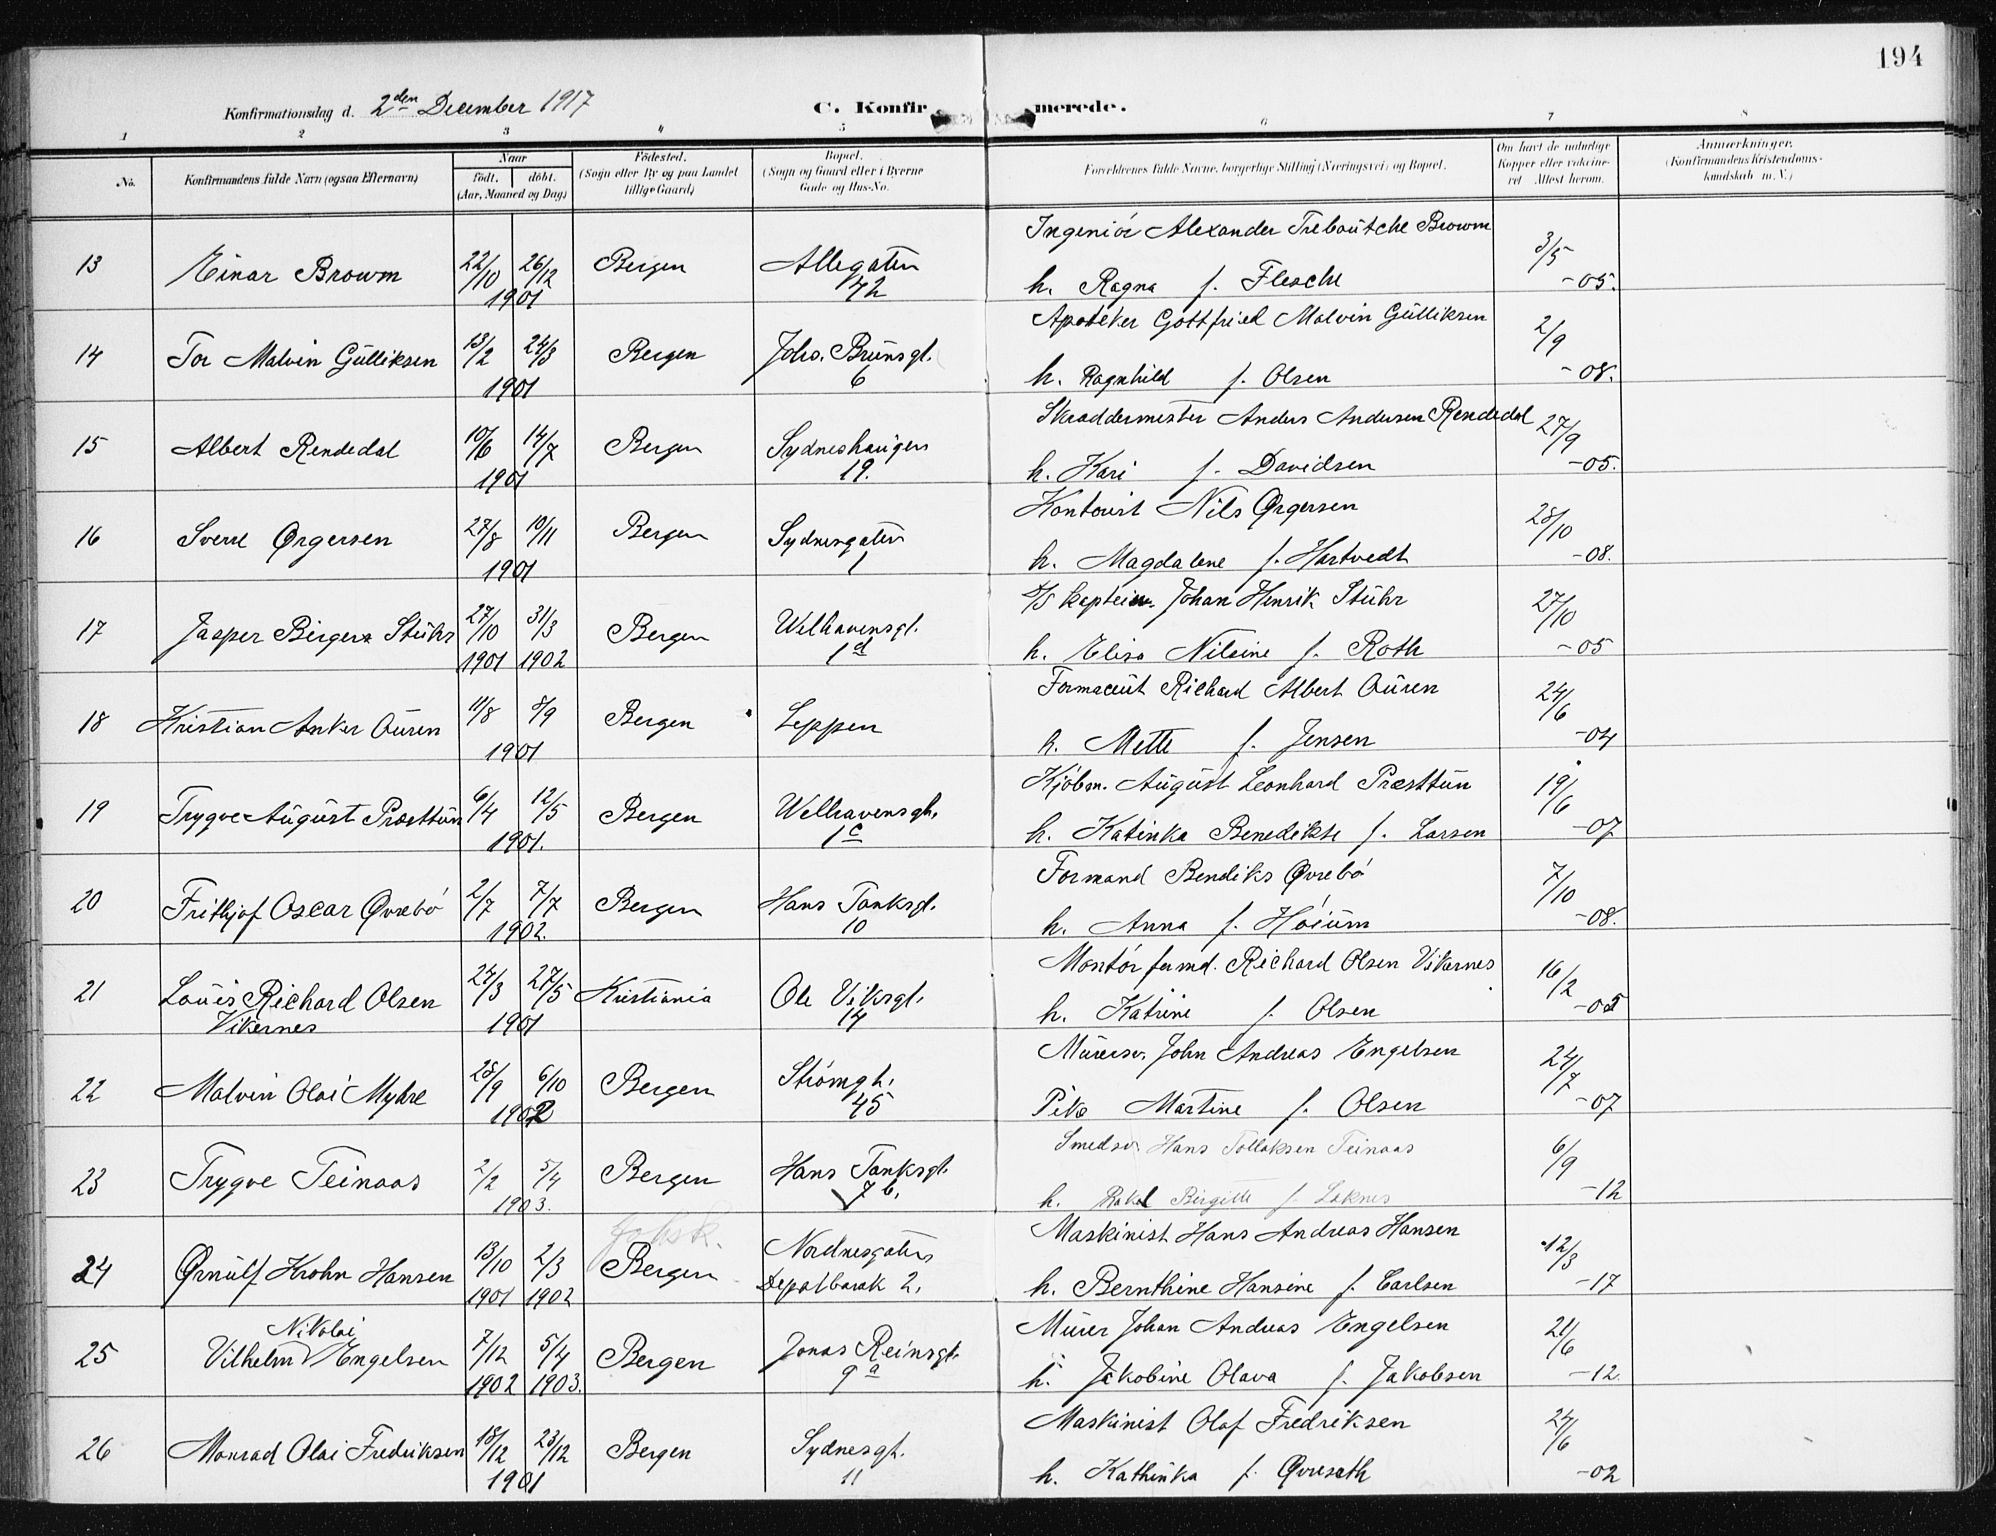 194
Konfirmationsdag d. 2den December 1917 C. Konfirmerede.
1 2 3 4 5 6 7 8
No. Konfirmandens fulde Navn (ogsaa Efternavn) Naar født. døbt. (Aar, Maaned og Dag) Fødested. (Sogn eller By og paa Landet tillige Gaard) Bopæl. (Sogn og Gaard eller i Byerne Gade og Hus-No. Forældrenes fulde Navne, borgerlige Stilling (Næringsvei) og Bopæl. Om havt de naturlige Kopper eller vaccineret. Attest herom. Anmærkninger. (Konfirmandens Kristendomskundskab m. V.)
Ingeniör Alexander Browm
13 Einar Browm 22/10 26/12 Bergen Allegaten 3/5
1901 72 h. Ragna f. Flesche -05.
Apoteker Gottfried Malvin Gülliksen
14 Tor Malvin Gülliksen 13/2 24/3 Bergen Johs. Brünsgt. 2/9
1901 6 h. Ragnhild f. Olsen -08.
Skræddermester Anders Andersen Rendedal
15 Albert Rendedal 10/6 14/7 Bergen Sydneshaugen 27/9
1901 19. h. Kari f. Davidsen -05.
Kontorist Nils Ørgersen
16 Sverre Ørgersen 27/8 10/11 Bergen Sydnesgaten 28/10
1901 1 h. Magdalene f. Hartvedt -08.
S/S kaptein Johan Henrik Stühr
17 Jasper Birger Stühr 27/10 31/3 Bergen Welhavensgt. 27/10
1901 1902 1d h. Elisa Nilsine f. Roth -05
Formaciut Richard Albert Aüren
18 Kristian Anker Aüren 11/8 8/9 Bergen Leppen 24/6
1901 h. Mette f. Jensen -04
Kjöbm. Augüst Leonhard Præsttün
19 Trygve Augüst Præsttün 6/4 12/5 Bergen Welhavensgt. 19/6
1901. 1c h. Katinka Benedikte f. Larsen -07
Formand Bendiks Øvrebö
20 Frithjof Oscar Øvrebö 2/7 7/7 Bergen Hans Tanksgt. 7/10
1902. 10 h. Anna f. Höiüm -08.
Montör formd. Richard Olsen Vikernes
21 Loüis Richard Olsen 24/3 27/5 Kristiania Ole Viksgt. 16/2
Vikernes 1901 14 h. Katrine f. Olsen -05
Mürersv. John Andreas Engelsen
22 Malvin Olai Myhre 28/9 6/10 Bergen Strömgt. 24/7
1902 45 Pike Martine f. Olsen -07
Smedsv. Hans Tollaksen Teinaas
23 Trygve Teinaas 2/2 5/4 Bergen Hans Tanksgt. 6/9
1903. 7b. h. Rakel Birgitte f. Loknes -12
Maskinist Hans Andreas Hansen
24 Ørnülf Krohn Hansen 13/10 2/3 Bergen Nordnesgaten 12/3
1901 1902 Depotbarak 2. h. Bernthine Hansine f. Carlsen -17
Nikolai Mürer Johan Andreas Engelsen
25 Vilhelm Engelsen 7/12 5/4 Bergen Jonas Reinsgt. 21/6
1902 1903. 9a h. Jakobine Olava f. Jakobsen -12.
Maskinist Olaf Fredriksen
26 Monrad Olai Fredriksen 18/12 23/12 Bergen Sydnesgt. 24/6
1901 11 h. Kathinka f. Øvresath -02